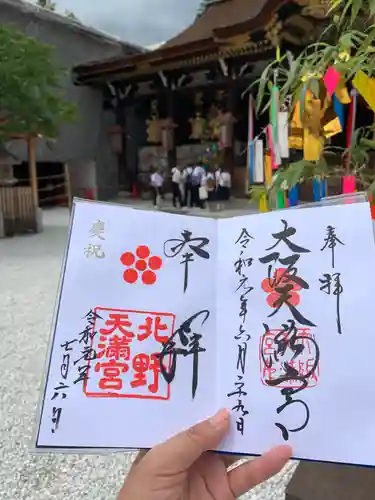 奉拝
大阪天満宮
令和元年六月二十九日
奉拝
北野
天満宮
令和元年
七月六日
慶祝